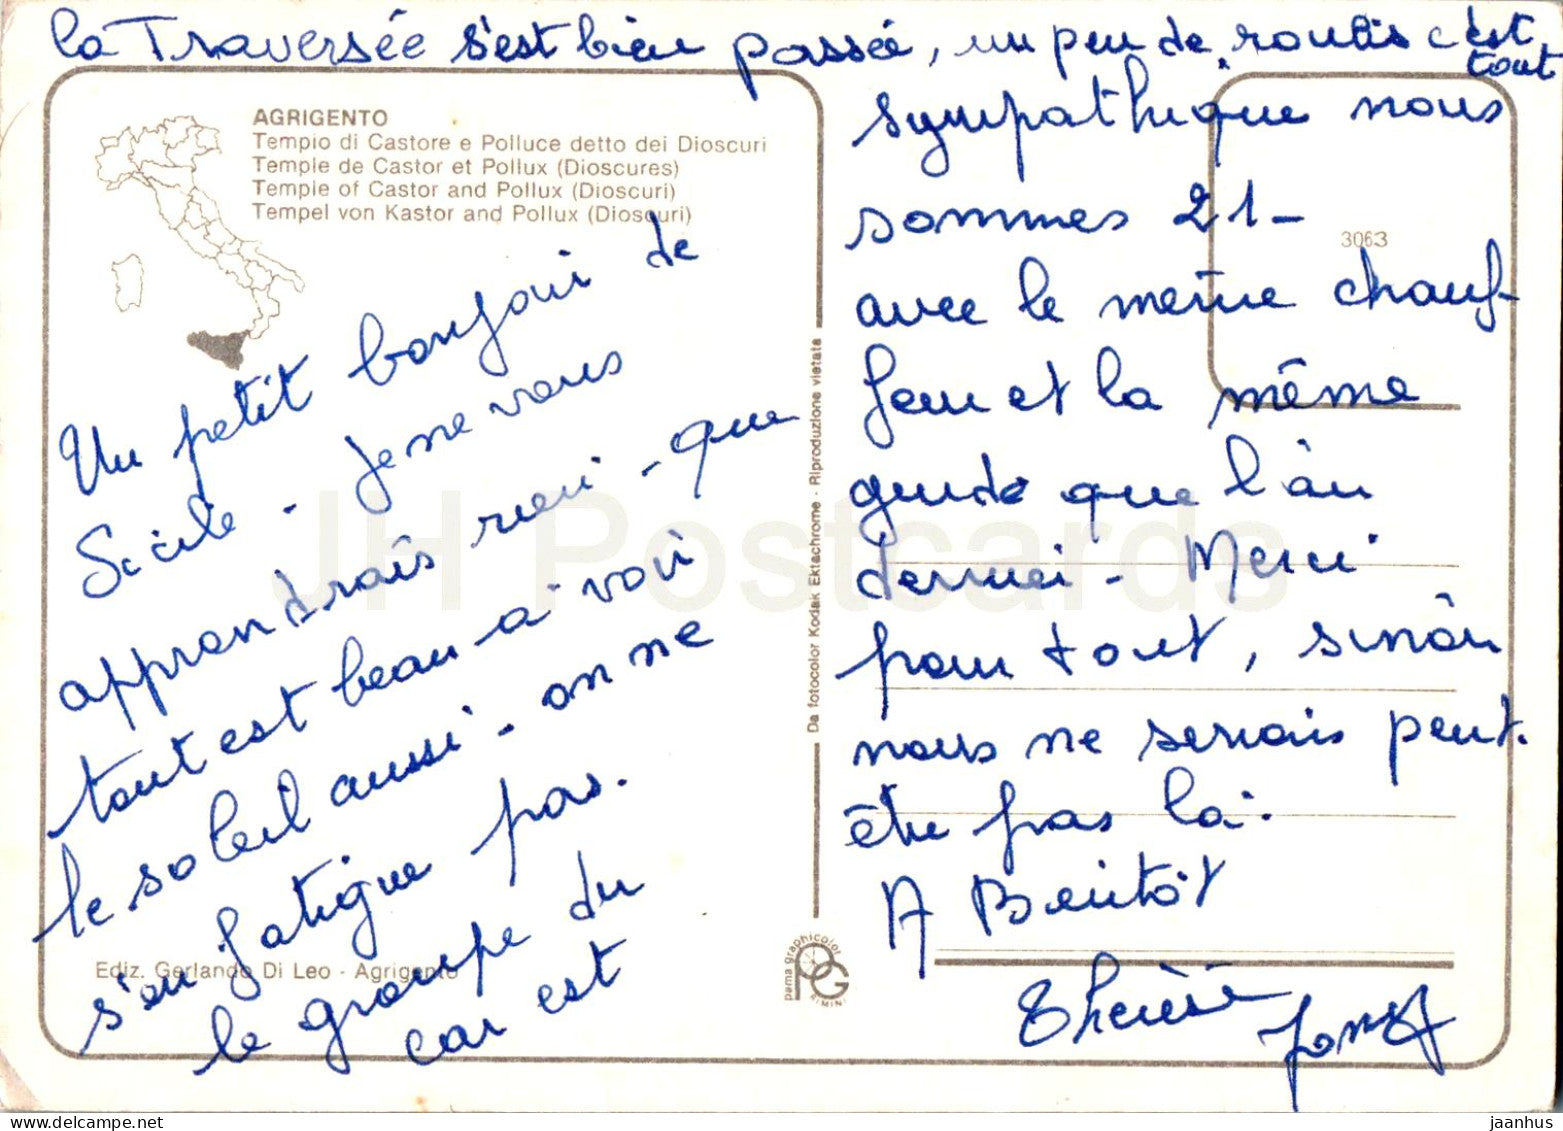 la Traversée s'est bien passée, un peu de roulis c'est
tout
AGRIGENTO
Tempio di Castore e Polluce detto dei Dioscuri
Temple de Castor et Pollux (Dioscures)
Temple of Castor and Pollux (Dioscuri)
Tempel von Kastor and Pollux (Dioscuri)
Un petit bonjour de
Sicile - je ne vous
apprendrais rien - que
tout est beau à voir
le soleil aussi - on ne
s'en fatigue pas.
le groupe du
car est
Ediz. Gerlando Di Leo - Agrigento
Da fotocolor Kodak Ektachrome - Riproduzione vietata
pama graphicolor
PG
RIMINI
3063
sympathique nous
sommes 21 -
avec le même chauf-
feur et la même
guide que l'an
dernier - Merci
pour tout, sinon
nous ne serions peut-
être pas là.
A Bientôt
Thérèse
JH Postcards
www.delcampe.net
jaanhus